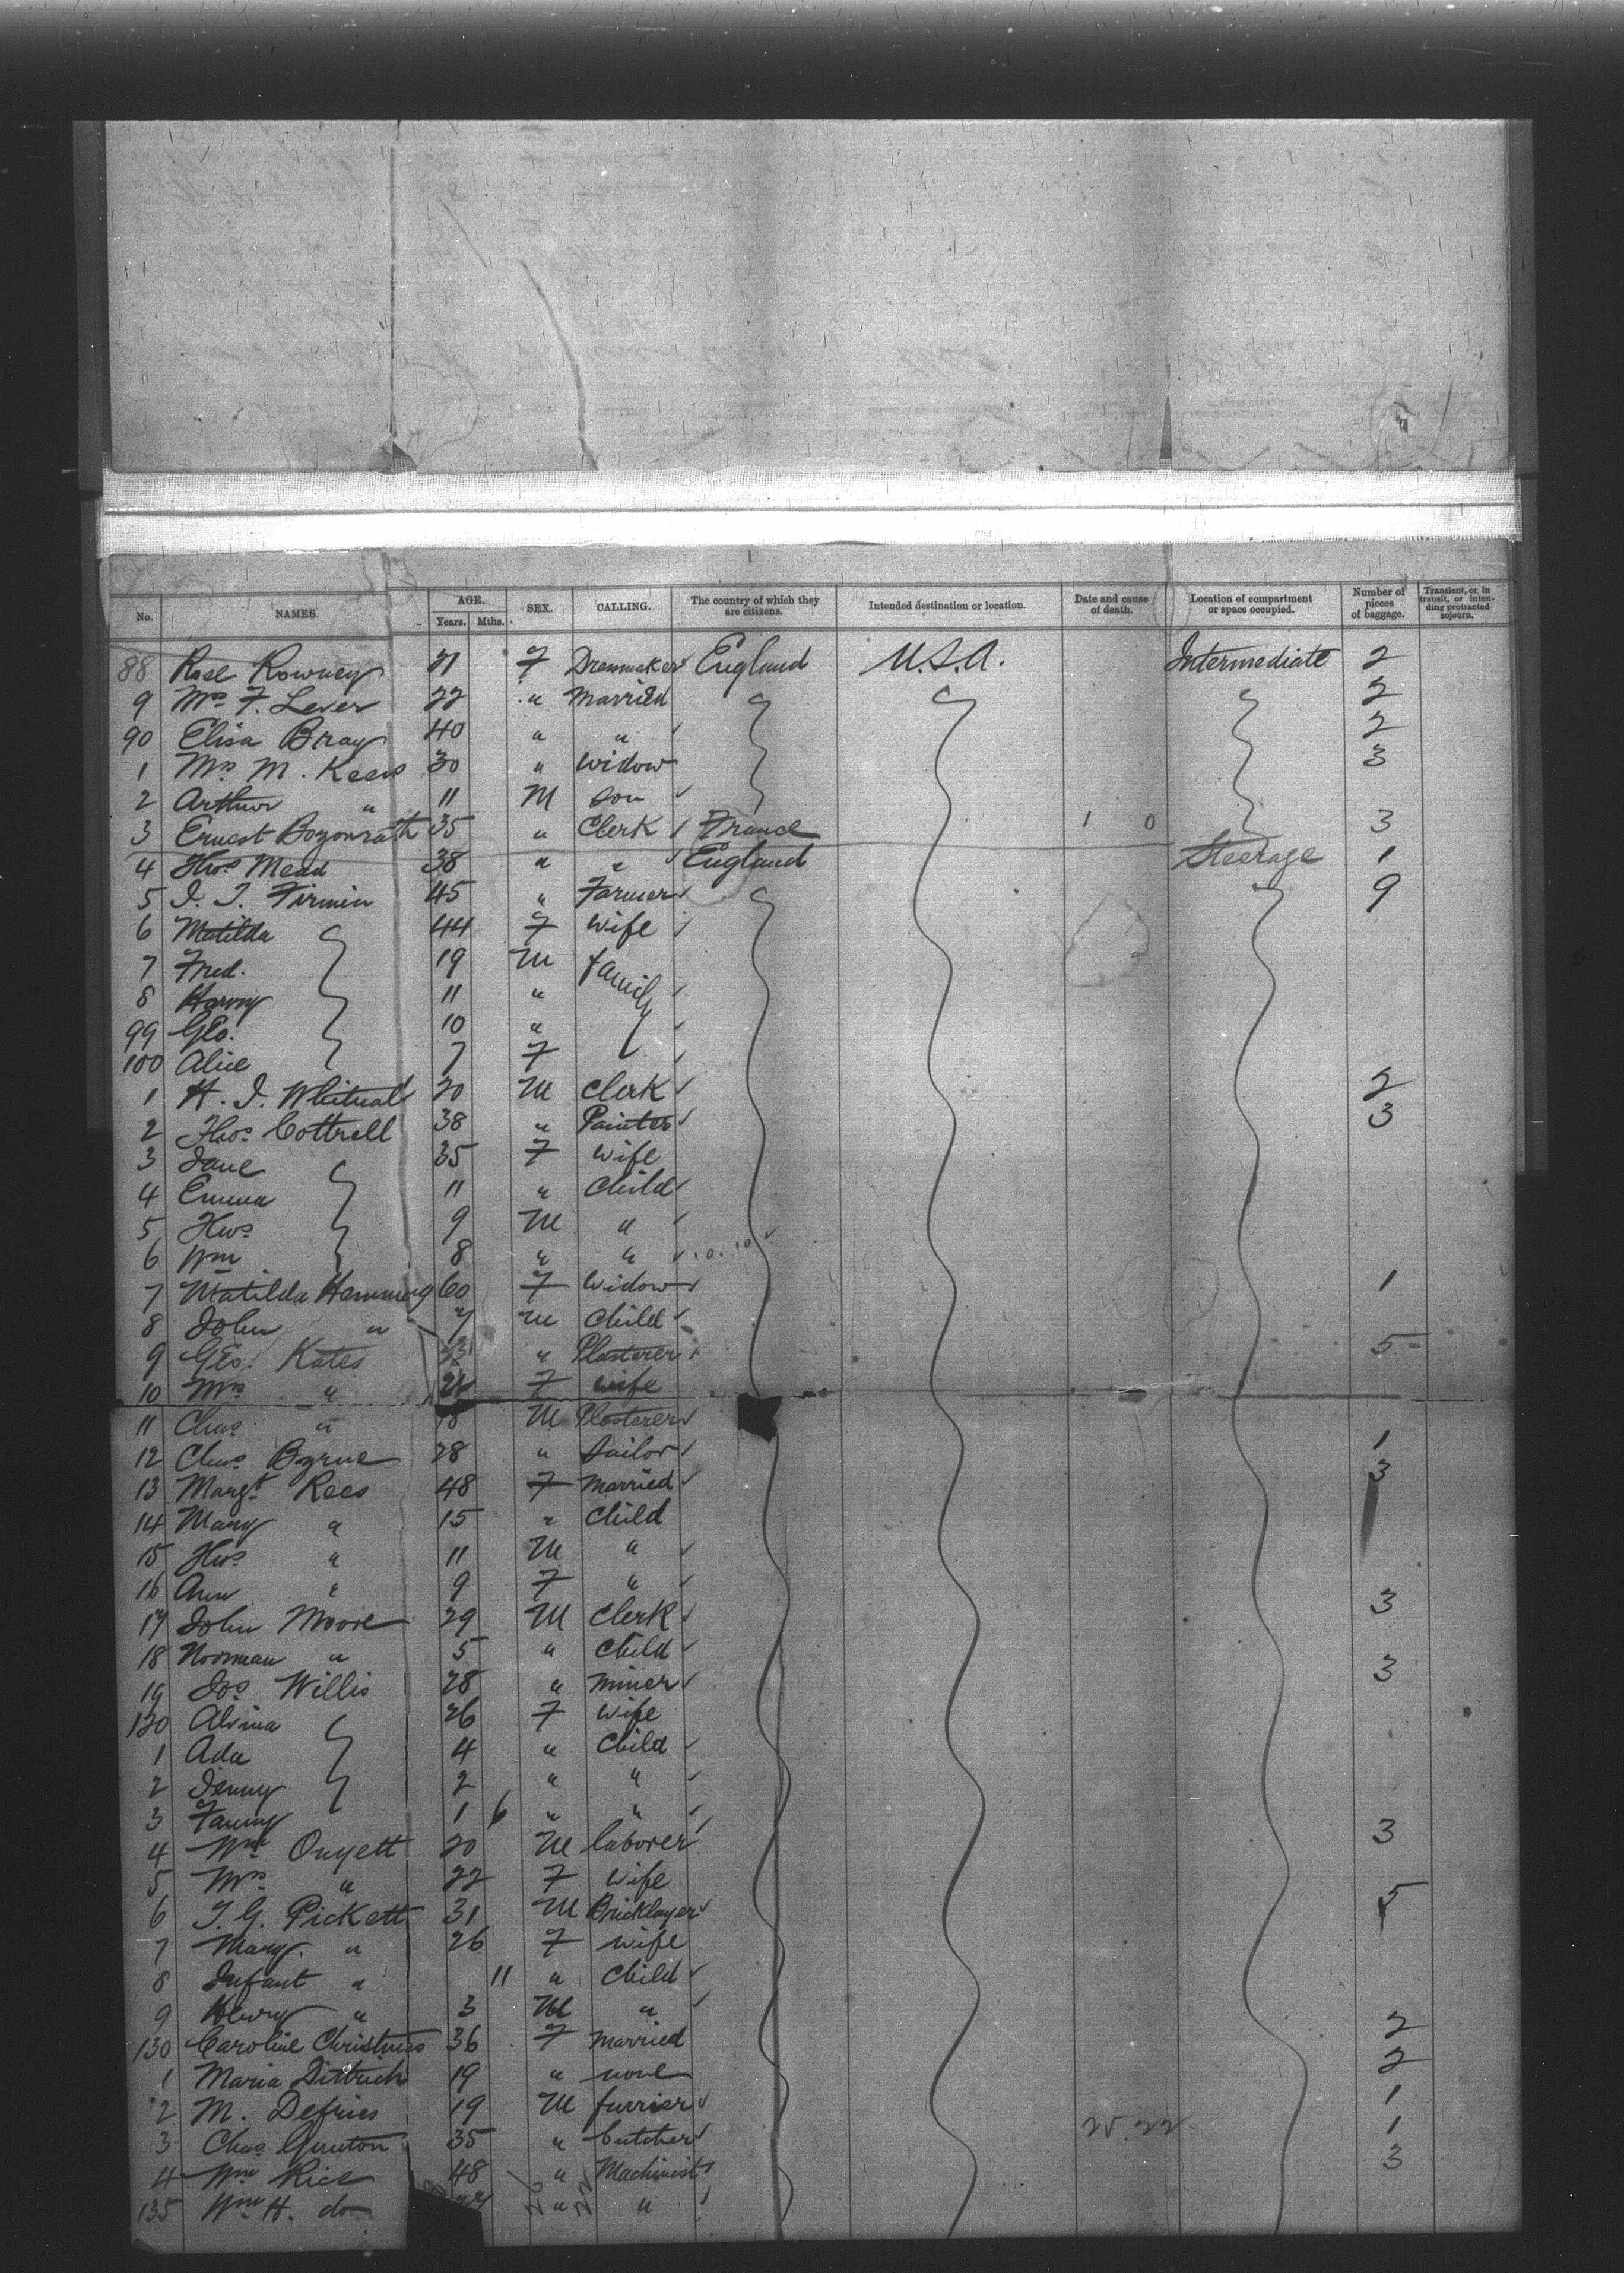 No. NAMES. AGE. Years. Mths. SEX. CALLING. The country of which they are citizens. Intended destination or location. Date and cause of death. Location of compartment or space occupied. Number of pieces of baggage. Transient, or in transit, or intending protracted sojourn.
88 Rose Rowney 21 F Dressmaker England U.S.A. Intermediate 2
9 Mrs F. Lever 22 " Married 2
90 Elisa Bray 40 " " 2
1 Mrs M. Kees 30 " Widow 3
2 Arthur " 11 M Son
3 Ernest 35 " Clerk France 1 0 3
4 Thos Mead 38 " " England Steerage 1
5 J. J. Firmin 45 " Farmer 9
6 Matilda 44 F Wife
7 Fred. 19 M family
8 Harvey 11 "
99 Geo. 10 "
100 Alice 7 F
1 H. J. 20 M Clerk 2
2 Thos Cottrell 38 " Painter 3
3 Jane 35 F Wife
4 Emma 11 " Child
5 Thos 9 M "
6 Wm 8 " "
7 Matilda Hemming 60 F Widow 1
8 John " 7 M Child
9 Geo. Kates " Plasterer 5
10 Mrs " F Wife
11 Chas " 18 M Plasterer
12 Chas Byrne 28 " Sailor 1
13 Margt Rees 48 F Married 3
14 Mary " 15 " Child
15 Thos " 11 M "
16 Ann " 9 F "
17 John Moore 29 M Clerk 3
18 Norman " 5 " Child
19 Jos Willis 28 " Miner 3
120 Alvina 26 F Wife
1 Ada 4 " Child
2 Jenny 2 " "
3 Fanny 1 6 " "
4 Wm 20 M laborer 3
5 Mrs " 22 F Wife
6 T. G. Pickett 31 M Bricklayer 5
7 Mary " 26 F wife
8 Infant " 11 " Child
9 Henry " 3 M "
130 Caroline Christmas 36 F Married 2
1 Maria Dittrich 19 " none 2
2 M. Defries 19 M furrier 1
3 Chas Gunton 35 " butcher 25.22 1
4 Wm Rice 48 " Machinist 3
135 Wm H. do " "